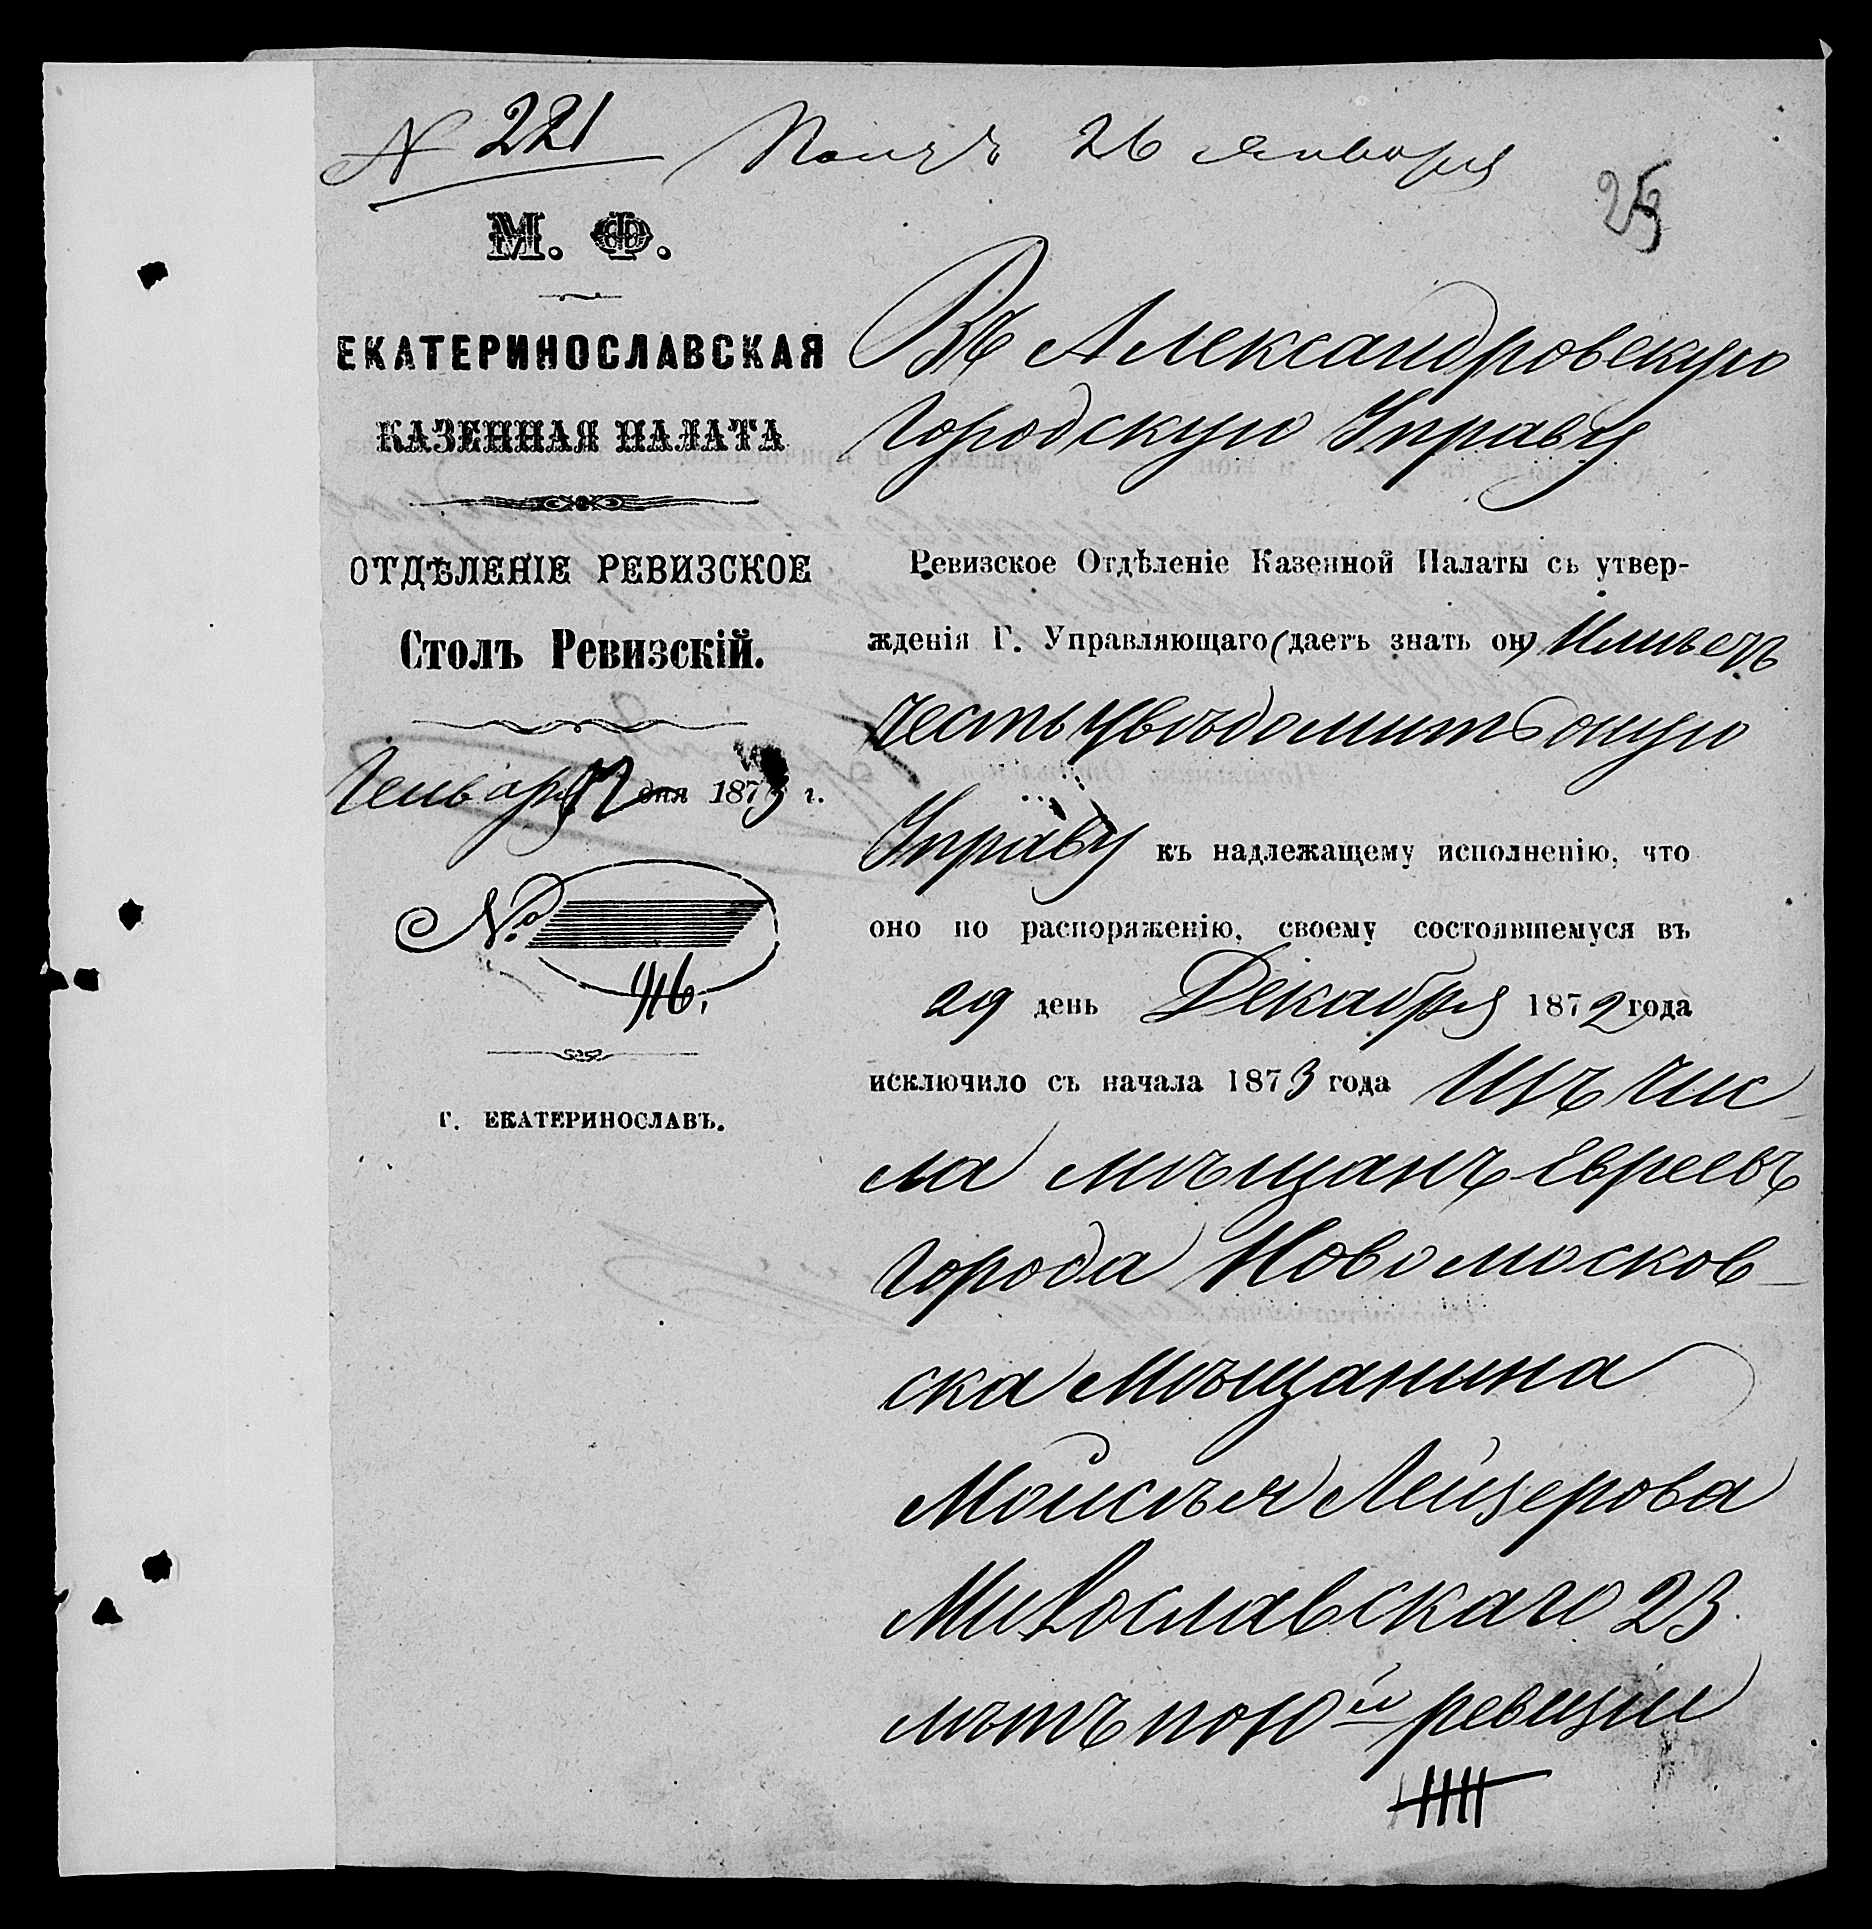 № 221 Получ. 26 января
25
М. Ф.
ЕКАТЕРИНОСЛАВСКАЯ
КАЗЕННАЯ ПАЛАТА
ОТДѢЛЕНІЕ РЕВИЗСКОЕ
Столъ Ревизскій.
Генваря 12 дня 1873 г.
№
г. ЕКАТЕРИНОСЛАВЪ.
Въ Александровскую
Городскую Управу
Ревизское Отдѣленіе Казенной Палаты съ утвер-
жденія Г. Управляющаго (даетъ знать он) Имѣетъ
честь увѣдомить оную
Управу къ надлежащему исполненію, что
оно по распоряженію, своему состоявшемуся въ
29 день Декабря 1872 года
исключило съ начала 1873 года изъ чис
ла мѣщанъ Евреевъ
города Новомосков-
ска мѣщанина
Моисѣя Лейзерова
Милославскаго 23
лѣтъ по 10й ревизіи